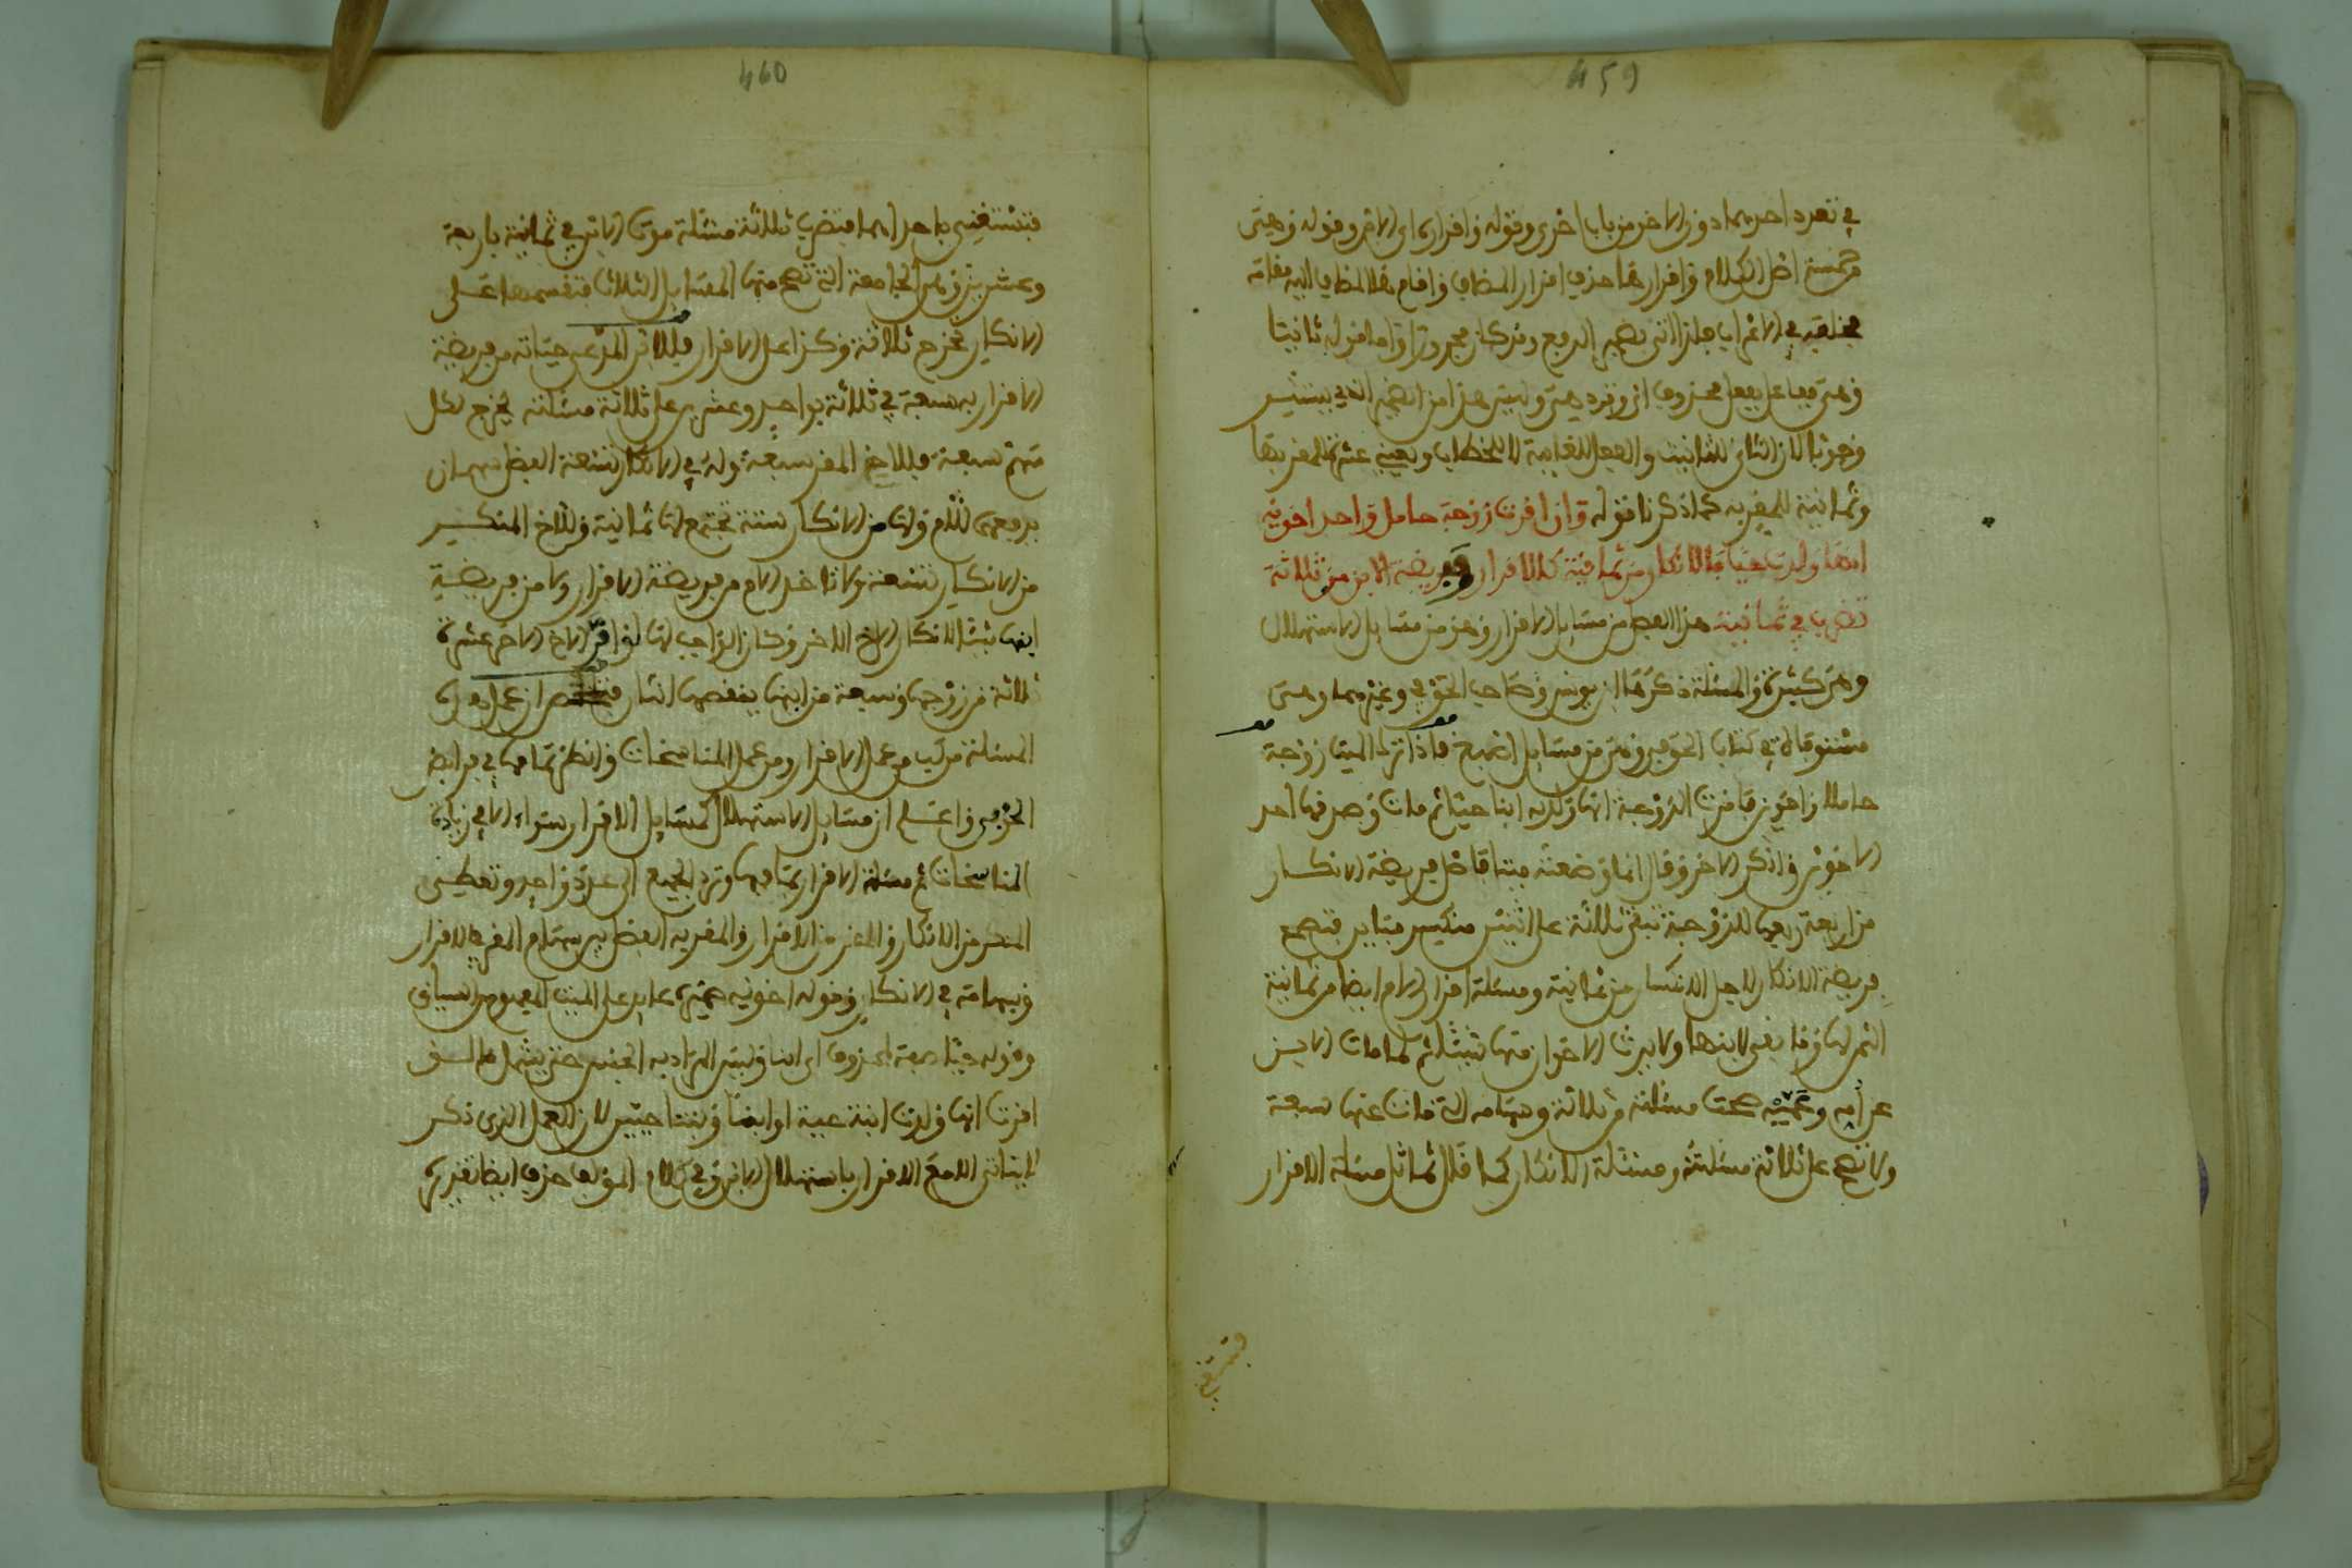 459
في تعدد احدهما دون الاخر من باب اخرى وقوله واقرارها اي الام وقوله وهي
من خمسة اصل الكلام واقرارها حذف اقرار المضاف واقام المضاف اليه مقامه
وهي فاعل بفعل محذوف
وهو بالتاء للتانيث والفعل للغايبة لا للخطاب ويعني عشرة للمقر بها
وثمانية للمقر به كما ذكرنا قوله وان اقرت زوجة حامل واحد اخويه
انها ولدت حيا فالانكار من ثمانية كالاقرار وفريضة الابن من ثلاثة
تضرب في ثمانية هذا الفصل من مسايل الاقرار وهو من مسايل الاستهلال
وهي كثيرة والمسئلة ذكرها ابن يونس وصاحب الحوفي وغيرهما وهي
مستوفاة في كتاب الحوفي وهي من مسايل فاذا ترك الميت زوجة
حاملا واخوين فاقرت الزوجة انها ولدت ابنا حيا ثم مات وصدقها احد
الاخوين وانكر الاخر وقال انما وضعته ميتا فاصل فريضة الانكار
من اربعة ربعها للزوجة تبقى ثلاثة على اثنين منكسر مباين فتصح
فريضة الانكار لاجل الانكسار من ثمانية ومسئلة اقرار الام ايضا من ثمانية
الثمن لها وما بقي لابنها ولا يرث الاخوان منها شيئا ثم لما مات الابن
عن امه وعميه صحت مسئلته من ثلاثة وسهامه التي مات عنها سبعة
ولا تصح على ثلاثة مسئلته ومسئلة الانكار كما قال تماثل مسئلة الاقرار
فتستغني
460
فتستغني باحداهما فتضرب ثلاثة مسئلة موت الابن في ثمانية باربعة
وعشرين وهي الجامعة التي تصح منها المسايل الثلاث فتقسمها على
الانكار تخرج ثلاثة وكذا على الاقرار فللابن المدعى حياته من فريضة
الاقرار سبعة في ثلاثة بواحد وعشرين على ثلاثة مسئلته يخرج لكل
سهم سبعة فللاخ المقر سبعة وله في الانكار تسعة الفضل سهمان
يدفعهما للام ولها من الانكار ستة تجتمع لها ثمانية وللاخ المنكر
من الانكار تسعة ولا تاخذ الام من فريضة الاقرار ولا من فريضة
ابنها شيئا لانكار الاخ الاخر وكان الواجب لها لو اقر الاخ الاخر عشرة
ثلاثة من زوجها وسبعة من ابنها ينقصها اثنان ان عمل هذه
المسئلة مركب من عمل الاقرار ومن عمل المناسخات وانظر تمامها في فرايض
الحوفي واعلم ان مسايل الاستهلال كمسايل الاقرار سواء الا في زيادة
المناسخات ثم مسئلة الاقرار بتمامها وترد الجميع الى عدد واحد وتعطي
المنكر من الانكار والمقر من الاقرار والمقر به الفضل بين سهام المقر في الاقرار
وسهامه في الانكار وقوله اخويه ضميره عايد على الميت المفهوم من السياق
وقوله حيا صفة لمحذوف اي ابنا وليس المراد به الجنس حتى يشمل ما لو
اقرت انها ولدت ابنة حية او ابنا وبنتا حيين لان العمل الذي ذكر
لا يتاتى الا مع الاقرار باستهلال الابن وفي كلام المؤلف حذف ايضا تقديره